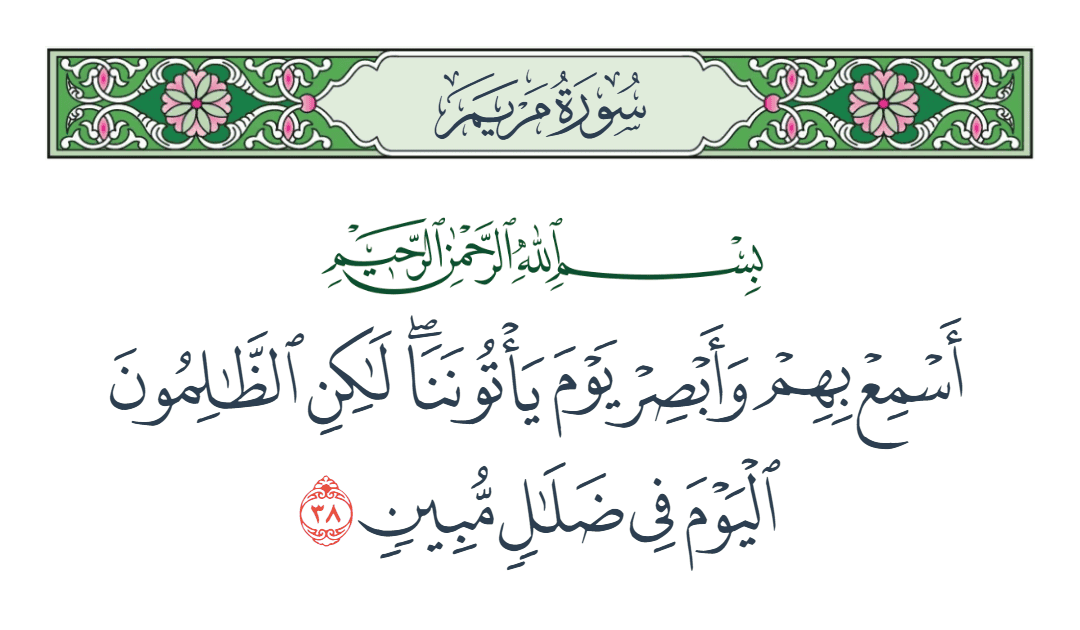 سُورَةُ مَرْيَمَ
بِسْمِ ٱللَّهِ ٱلرَّحْمَٰنِ ٱلرَّحِيمِ
أَسْمِعْ بِهِمْ وَأَبْصِرْ يَوْمَ يَأْتُونَنَا ۖ لَٰكِنِ ٱلظَّٰلِمُونَ
ٱلْيَوْمَ فِى ضَلَٰلٍ مُّبِينٍ ٣٨